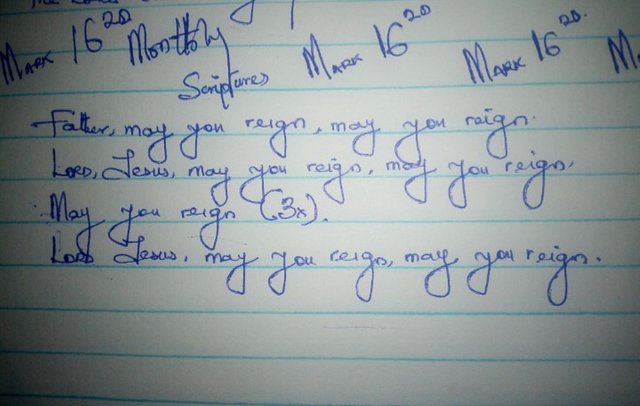 Mark 16²⁰ Monthly Mark 16²⁰ Mark 16²⁰
Scriptures
Father, may you reign, may you reign.
Lord, Jesus, may you reign, may you reign.
May you reign (3x).
Lord Jesus, may you reign, may you reign.